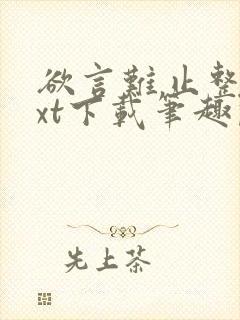 欲言難止整
xt下載筆趣
先上茶